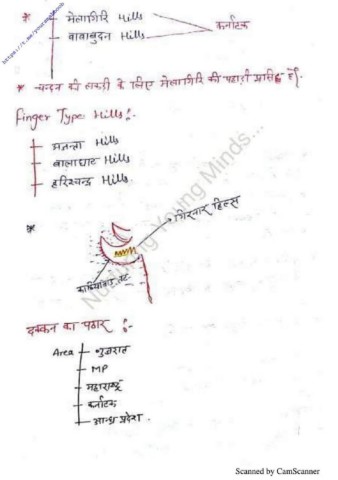 * मेलागिरि Hills
बाबाबुदन Hills
कर्नाटक
* चन्दन की लकड़ी के लिए मेलागिरि की पहाड़ी प्रसिद्ध है।
Finger Type Hills:-
बालाघाट Hills
हरिश्चन्द्र Hills
*
गिरनार हिल्स
काठियावाड़ तट
दक्कन का पठार :-
Area गुजरात
MP
महाराष्ट्र
कर्नाटक
आन्ध्र प्रदेश.
Nurturing Young Minds...
Scanned by CamScanner